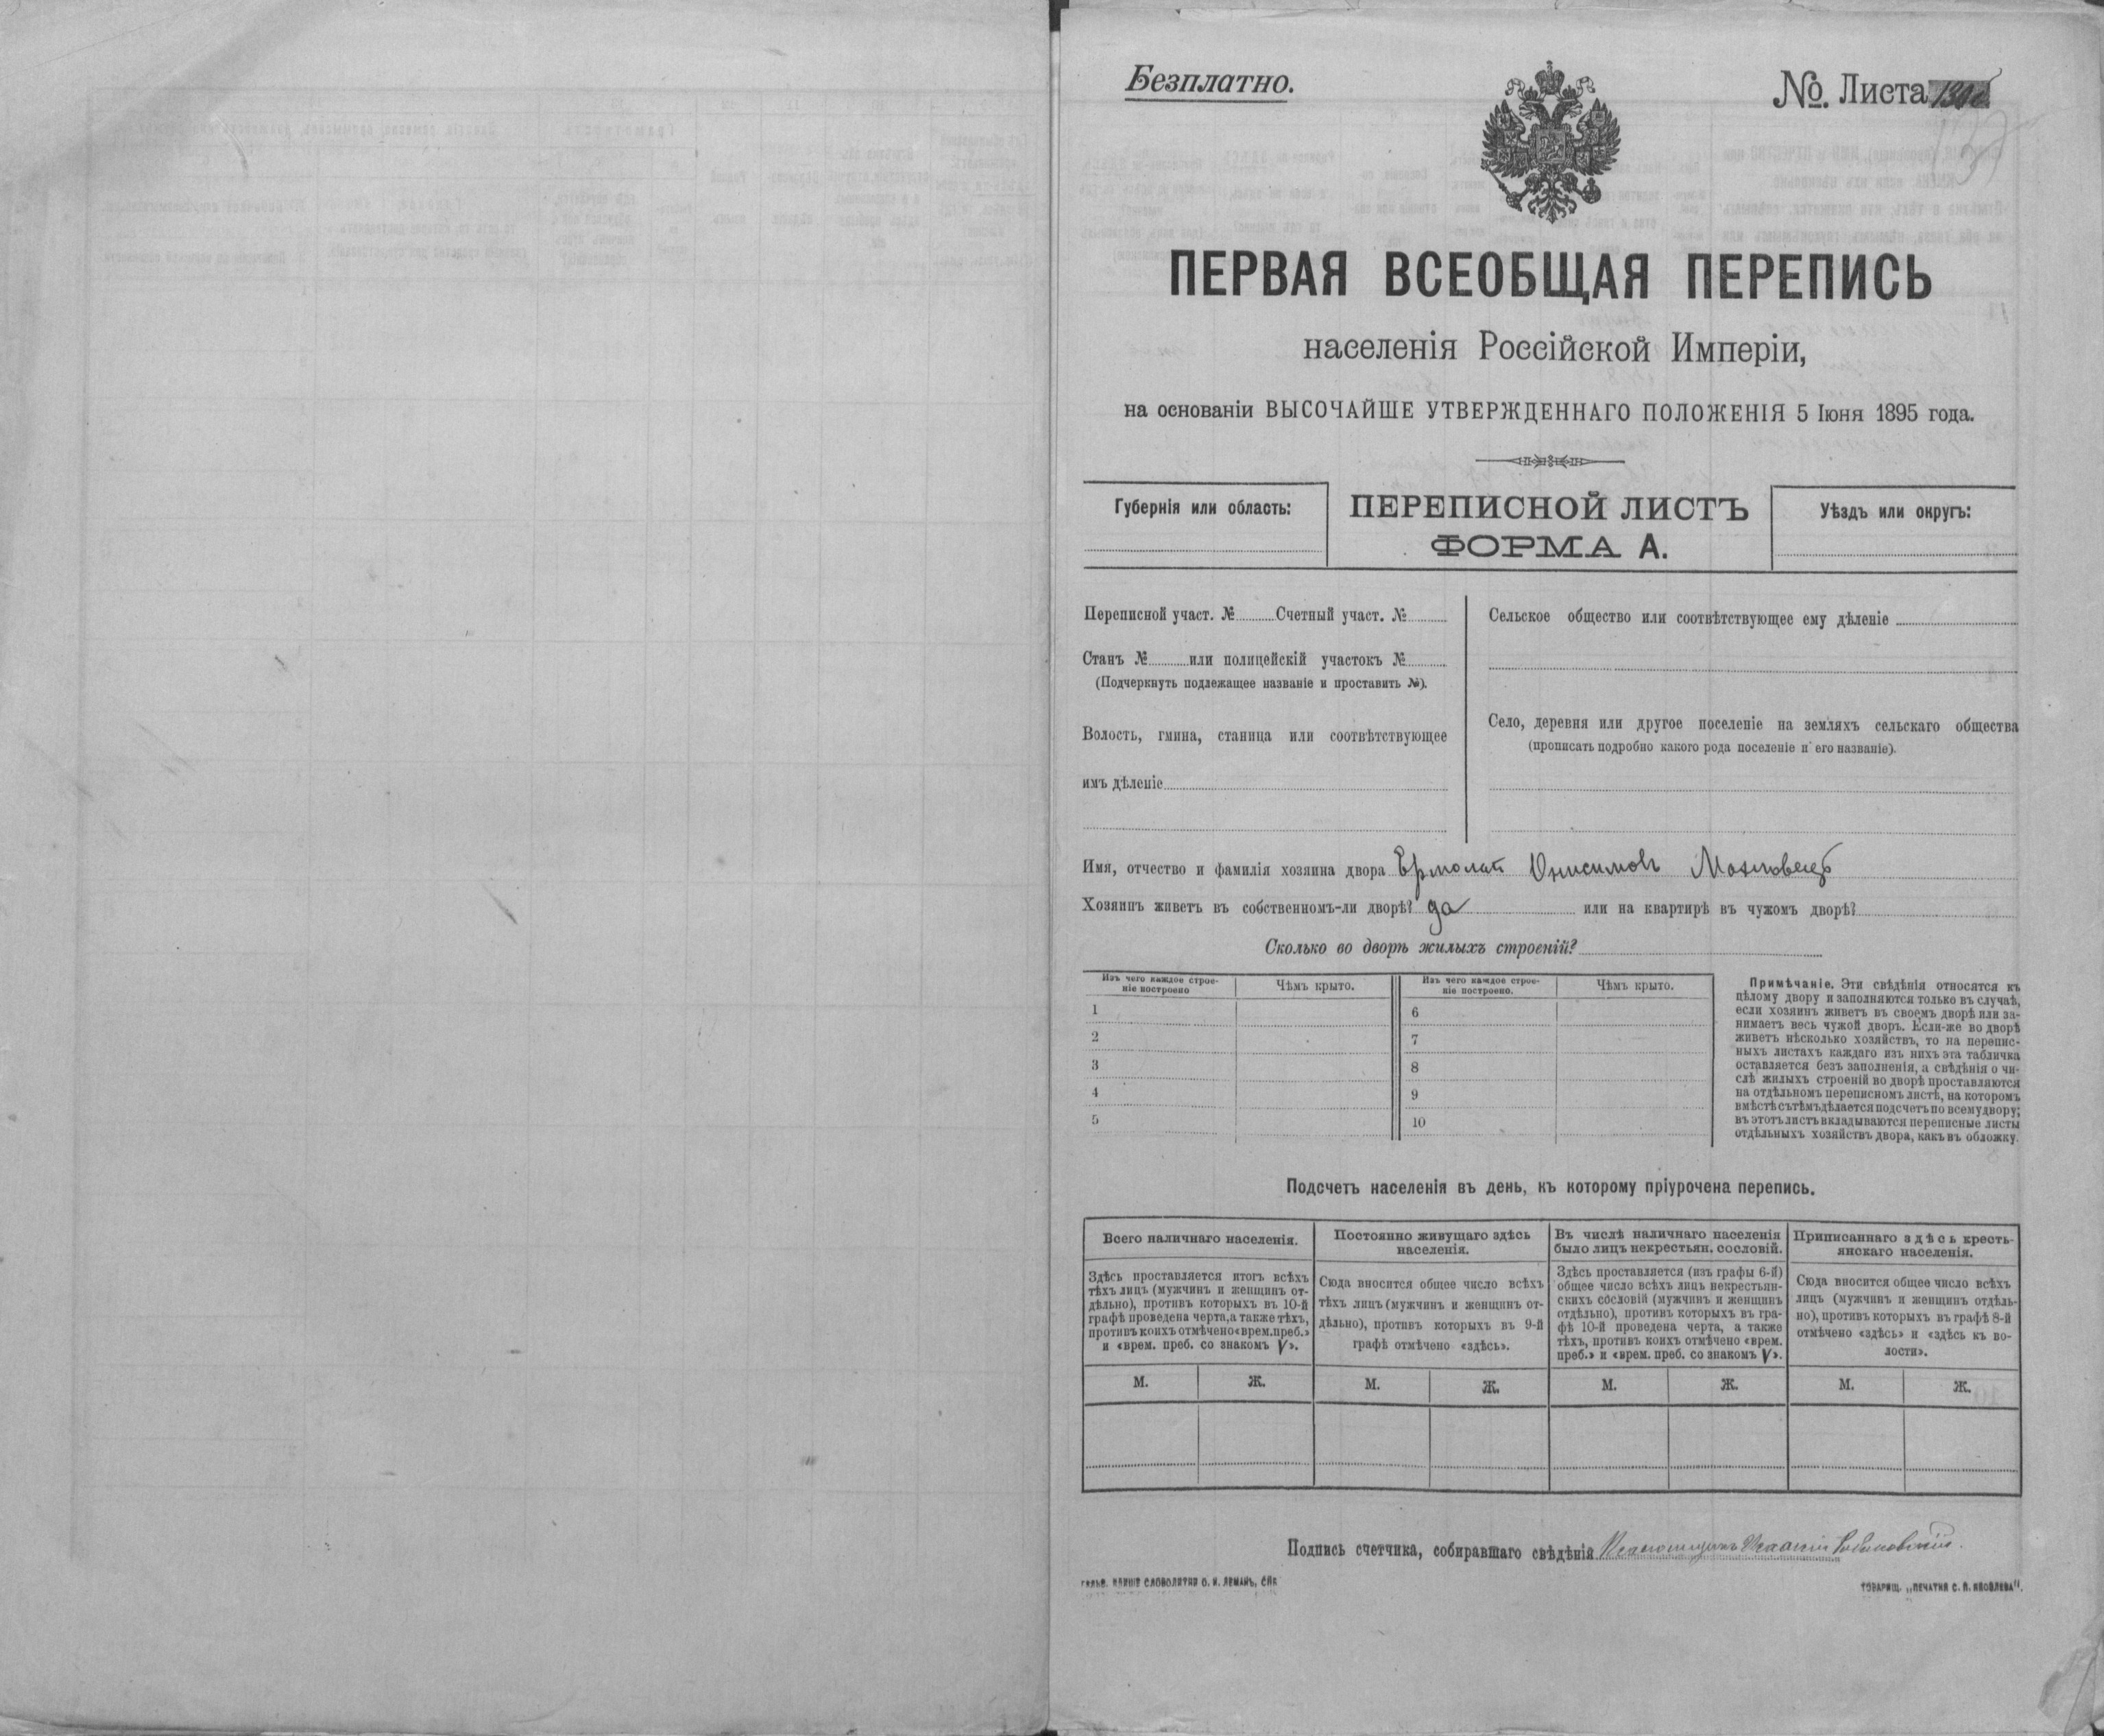 Безплатно.
№. Листа
ПЕРВАЯ ВСЕОБЩАЯ ПЕРЕПИСЬ
населенія Россійской Имперіи,
на основаніи ВЫСОЧАЙШЕ УТВЕРЖДЕННАГО ПОЛОЖЕНІЯ 5 Іюня 1895 года.
Губернія или область:
ПЕРЕПИСНОЙ ЛИСТЪ
ФОРМА А.
Уѣздъ или округъ:
Переписной участ. № Счетный участ. №
Станъ № или полицейскій участокъ №
(Подчеркнуть подлежащее названіе и проставить №).
Волость, гмина, станица или соотвѣтствующее
имъ дѣленіе
Сельское общество или соотвѣтствующее ему дѣленіе
Село, деревня или другое поселеніе на земляхъ сельскаго общества
(прописать подробно какого рода поселеніе и его названіе).
Имя, отчество и фамилія хозяина двора Ермолай Онисимовъ
Хозяинъ живетъ въ собственномъ-ли дворѣ? да или на квартирѣ въ чужомъ дворѣ?
Сколько во дворѣ жилыхъ строеній?
Изъ чего каждое строе-
ніе построено
Чѣмъ крыто.
Изъ чего каждое строе-
ніе построено.
Чѣмъ крыто.
1
2
3
4
5
6
7
8
9
10
Примѣчаніе. Эти свѣдѣнія относятся къ
цѣлому двору и заполняются только въ случаѣ,
если хозяинъ живетъ въ своемъ дворѣ или за-
нимаетъ весь чужой дворъ. Если-же во дворѣ
живетъ нѣсколько хозяйствъ, то на перепис-
ныхъ листахъ каждаго изъ нихъ эта табличка
оставляется безъ заполненія, а свѣдѣнія о чи-
слѣ жилыхъ строеній во дворѣ проставляются
на отдѣльномъ переписномъ листѣ, на которомъ
вмѣстѣ съ тѣмъ дѣлается подсчетъ по всему двору;
въ этотъ листъ вкладываются переписные листы
отдѣльныхъ хозяйствъ двора, какъ въ обложку.
Подсчетъ населенія въ день, къ которому пріурочена перепись.
Всего наличнаго населенія.
Здѣсь проставляется итогъ всѣхъ
тѣхъ лицъ (мужчинъ и женщинъ от-
дѣльно), противъ которыхъ въ 10-й
графѣ проведена черта, а также тѣхъ,
противъ коихъ отмѣчено «врем. преб.»
и «врем. преб. со знакомъ V».
Постоянно живущаго здѣсь
населенія.
Сюда вносится общее число всѣхъ
тѣхъ лицъ (мужчинъ и женщинъ от-
дѣльно), противъ которыхъ въ 9-й
графѣ отмѣчено «здѣсь».
Въ числѣ наличнаго населенія
было лицъ некрестьян. сословій.
Здѣсь проставляется (изъ графы 6-й)
общее число всѣхъ лицъ некрестьян-
скихъ сословій (мужчинъ и женщинъ
отдѣльно), противъ которыхъ въ гра-
фѣ 10-й проведена черта, а также
тѣхъ, противъ коихъ отмѣчено «врем.
преб.» и «врем. преб. со знакомъ V».
Приписаннаго здѣсь кресть-
янскаго населенія.
Сюда вносится общее число всѣхъ
лицъ (мужчинъ и женщинъ отдѣль-
но), противъ которыхъ въ графѣ 8-й
отмѣчено «здѣсь» и «здѣсь къ во-
лости».
М. Ж. М. Ж. М. Ж. М. Ж.
Подпись счетчика, собиравшаго свѣдѣнія
СЛОВОЛИТНИ О. И. ЛЕМАНЪ, СПБ
ТОВАРИЩ. „ПЕЧАТНЯ С. П. ЯКОВЛЕВА".